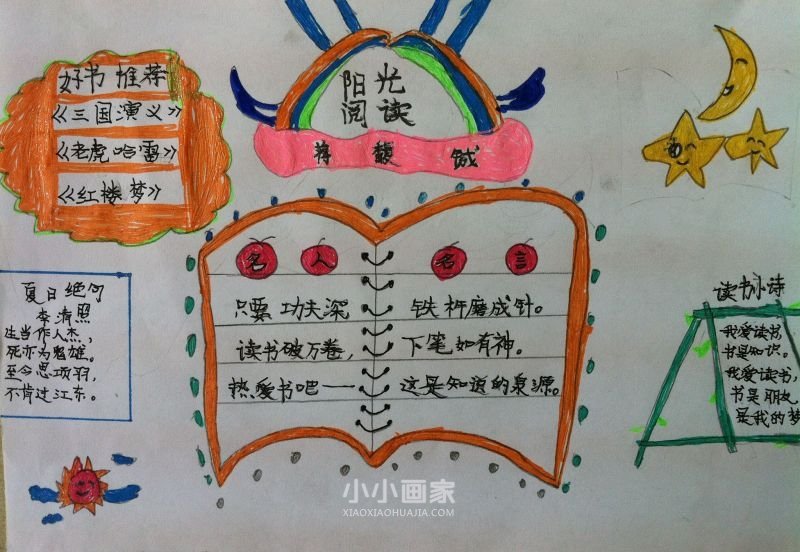 好书推荐
《三国演义》
《老虎哈雷》
《红楼梦》
阳光
阅读
蒋馥
名人名言
只要功夫深 铁杵磨成针。
读书破万卷, 下笔如有神。
热爱书吧一 这是知道的泉源。
夏日绝句
李清照
生当作人杰,
死亦为鬼雄。
至今思项羽,
不肯过江东。
读书小诗
我爱读书,
书是知识。
我爱读书,
书是朋友
是我的梦
小小画家
XIAOXIAOHUAJIA.COM